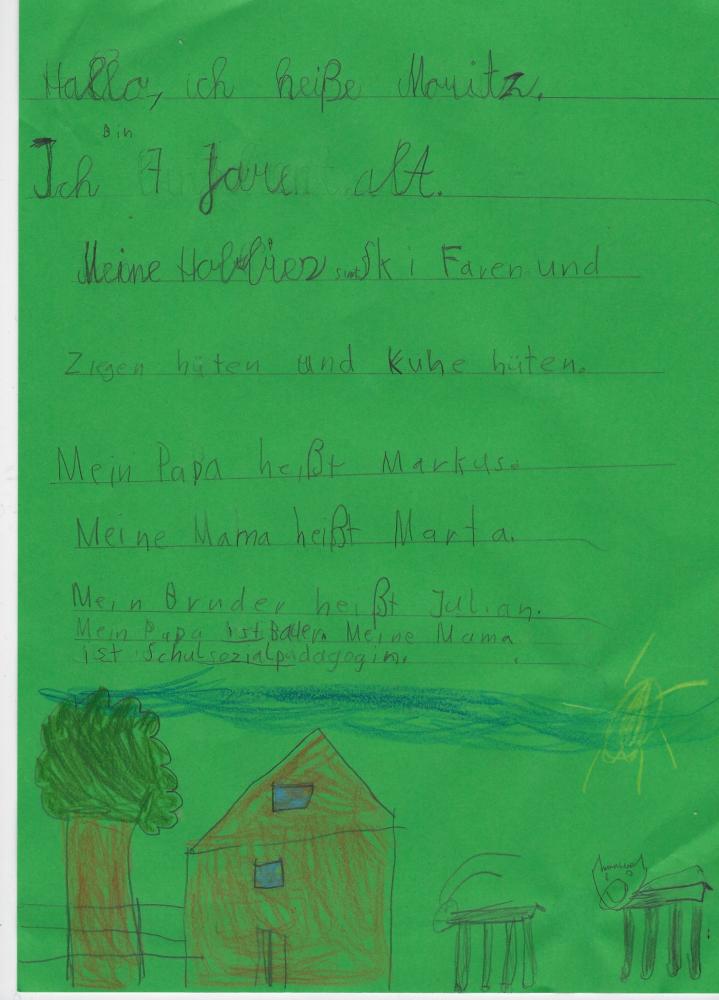 Hallo, ich heiße Mouritz.
Bin
Ich 7 Jaren alt.
Meine Hobbies sint Ski Faren und
Ziegen hüten und Kuhe hüten.
Mein Papa heißt Markus.
Meine Mama heißt Marta.
Mein Bruder heißt Julian.
Mein Papa ist Bauer. Meine Mama
ist Schulsozialpädagogin.